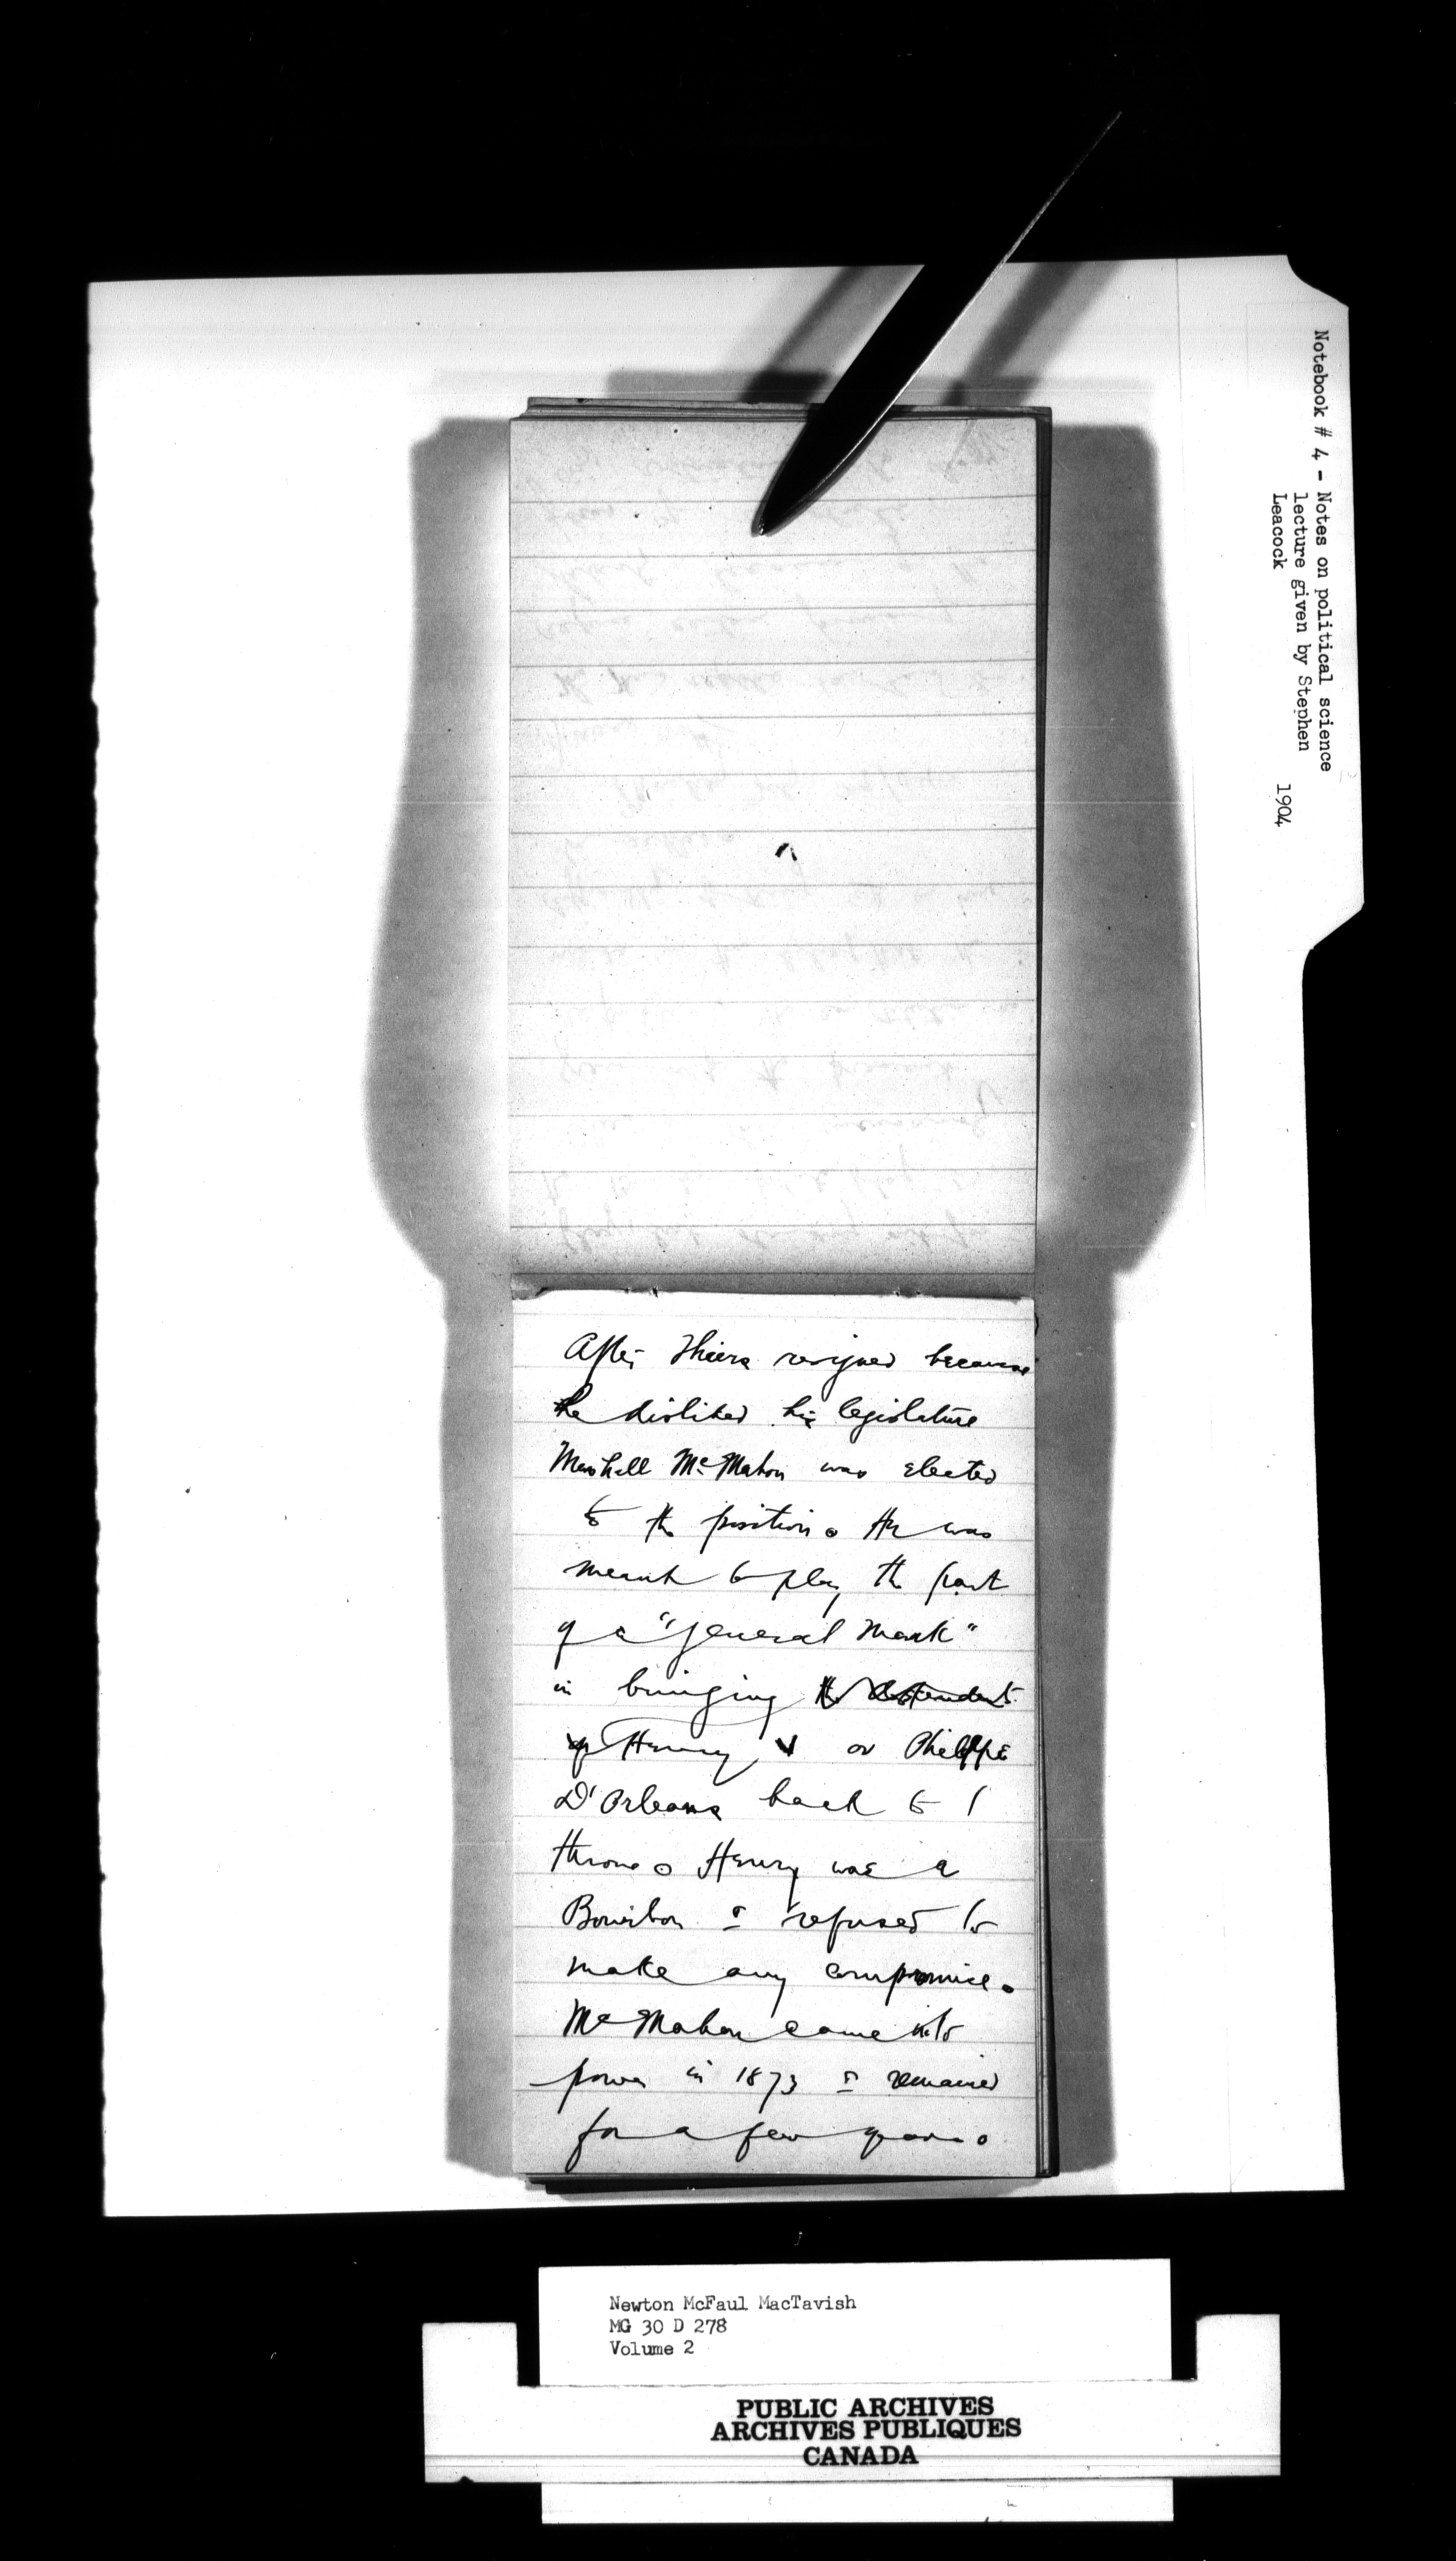 Notebook # 4 - Notes on political science
lecture given by Stephen
Leacock 1904
After Thiers resigned because
he disliked his legislature
Marshall McMahon was elected
to the position. He was
meant to play the part
of a "general Monk"
in bringing the descendents
of Henry V or Philippe
D'Orleans back to /
throne. Henry was a
Bourbon & refused to
make any compromise.
McMahon came into
power in 1873 & remained
for a few years.
Newton McFaul MacTavish
MG 30 D 278
Volume 2
PUBLIC ARCHIVES
ARCHIVES PUBLIQUES
CANADA